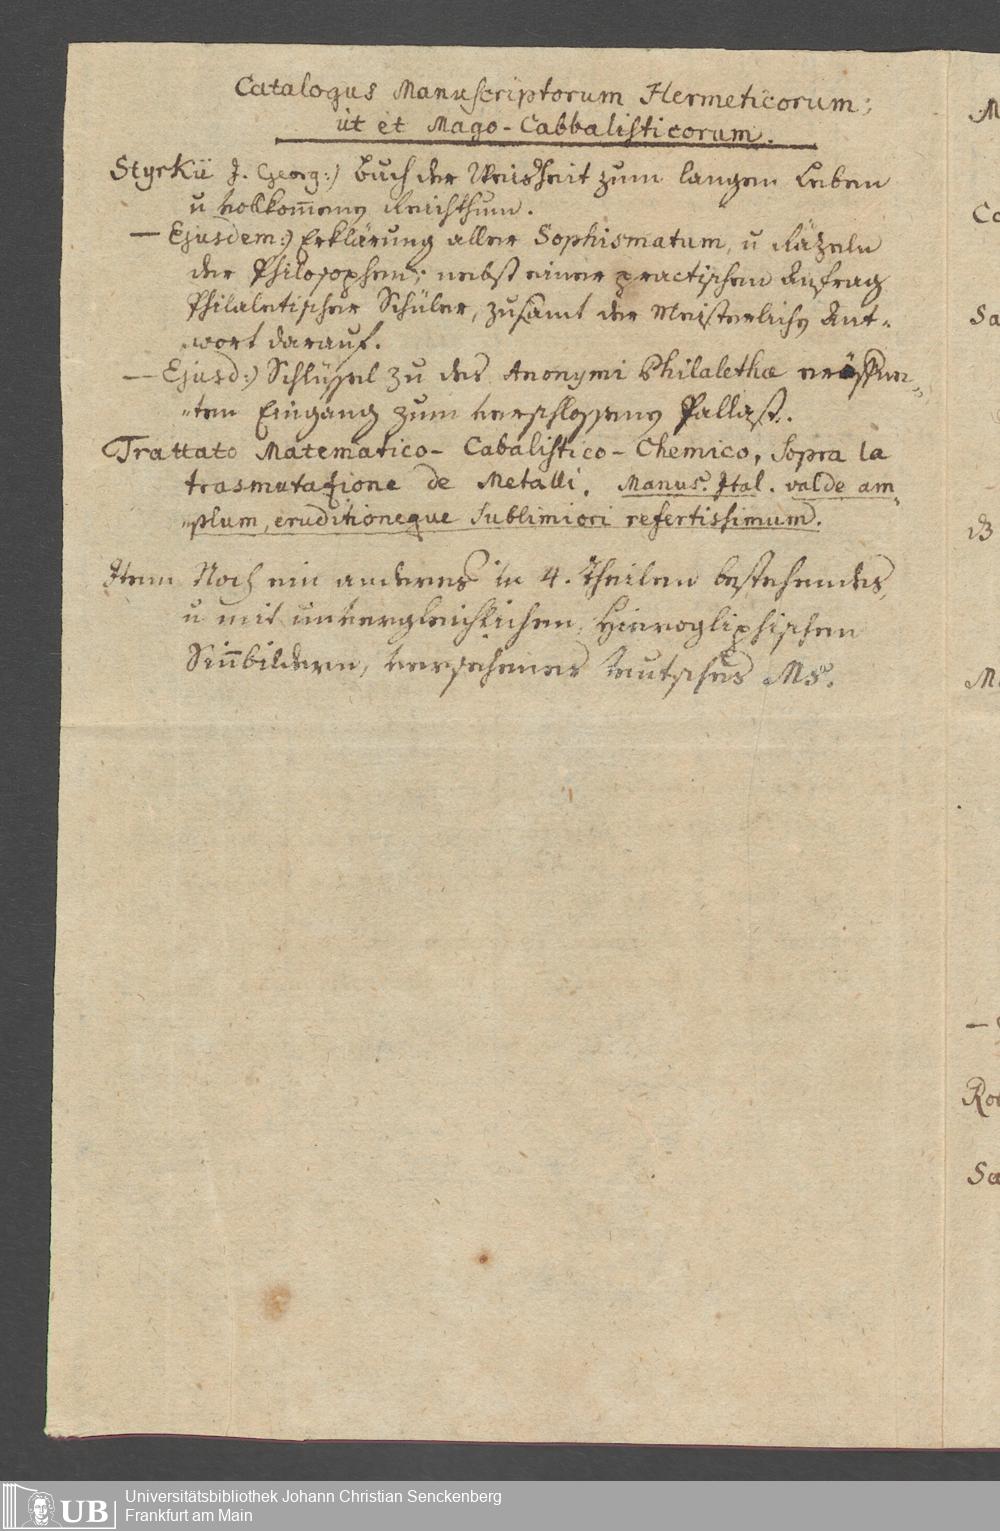 Catalogus Manuscriptorum Hermeticorum;
ut et Mago-Cabbalisticorum.
Styrkii J. Georg:) Buch der Weisheit zum langen Leben
u vollkom̄enen Reichthum.
— Ejusdem:) Erklärung aller Sophismatum, u Räzeln
der Philosophen; nebst einer practischen Anfrag
Philaletischer Schüler, zusamt der Meisterlichen Ant-
wort darauf.
— Ejusd:) Schlüssel zu des Anonymi Philalethæ eröffne-
ten Eingang zum verschlossenen Pallast.
Trattato Matematico-Cabalistico-Chemico, sopra la
trasmutazione de Metalli. Manus. Ital. valde am-
plum, eruditioneque sublimiori refertissimum.
Item Noch ein anderes in 4. Theilen bestehendes,
u mit unvergleichlichen, Hierogliphischen
Sin̄bildern, versehenes teutsches Ms.
M
Co
Sa
B
M
—
Ro
Sa
UB
Universitätsbibliothek Johann Christian Senckenberg
Frankfurt am Main